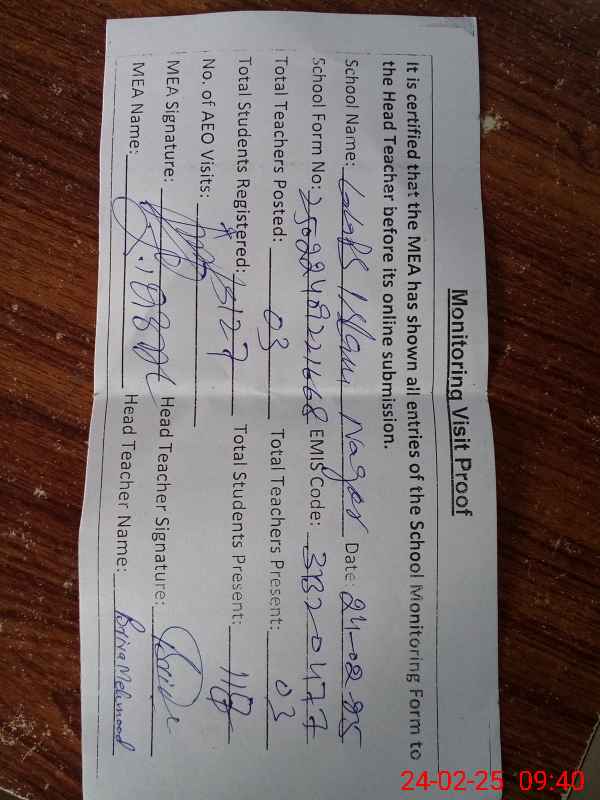 Monitoring Visit Proof
It is certified that the MEA has shown all entries of the School Monitoring Form to
the Head Teacher before its online submission.
School Name: Islam Nagar Date: 24-02-25
School Form No: EMIS Code: 31320477
Total Teachers Posted: 03 Total Teachers Present: 03
Total Students Registered: 127 Total Students Present:
No. of AEO Visits:
MEA Signature: Head Teacher Signature:
MEA Name: Head Teacher Name: Mehmood
24-02-25 09:40